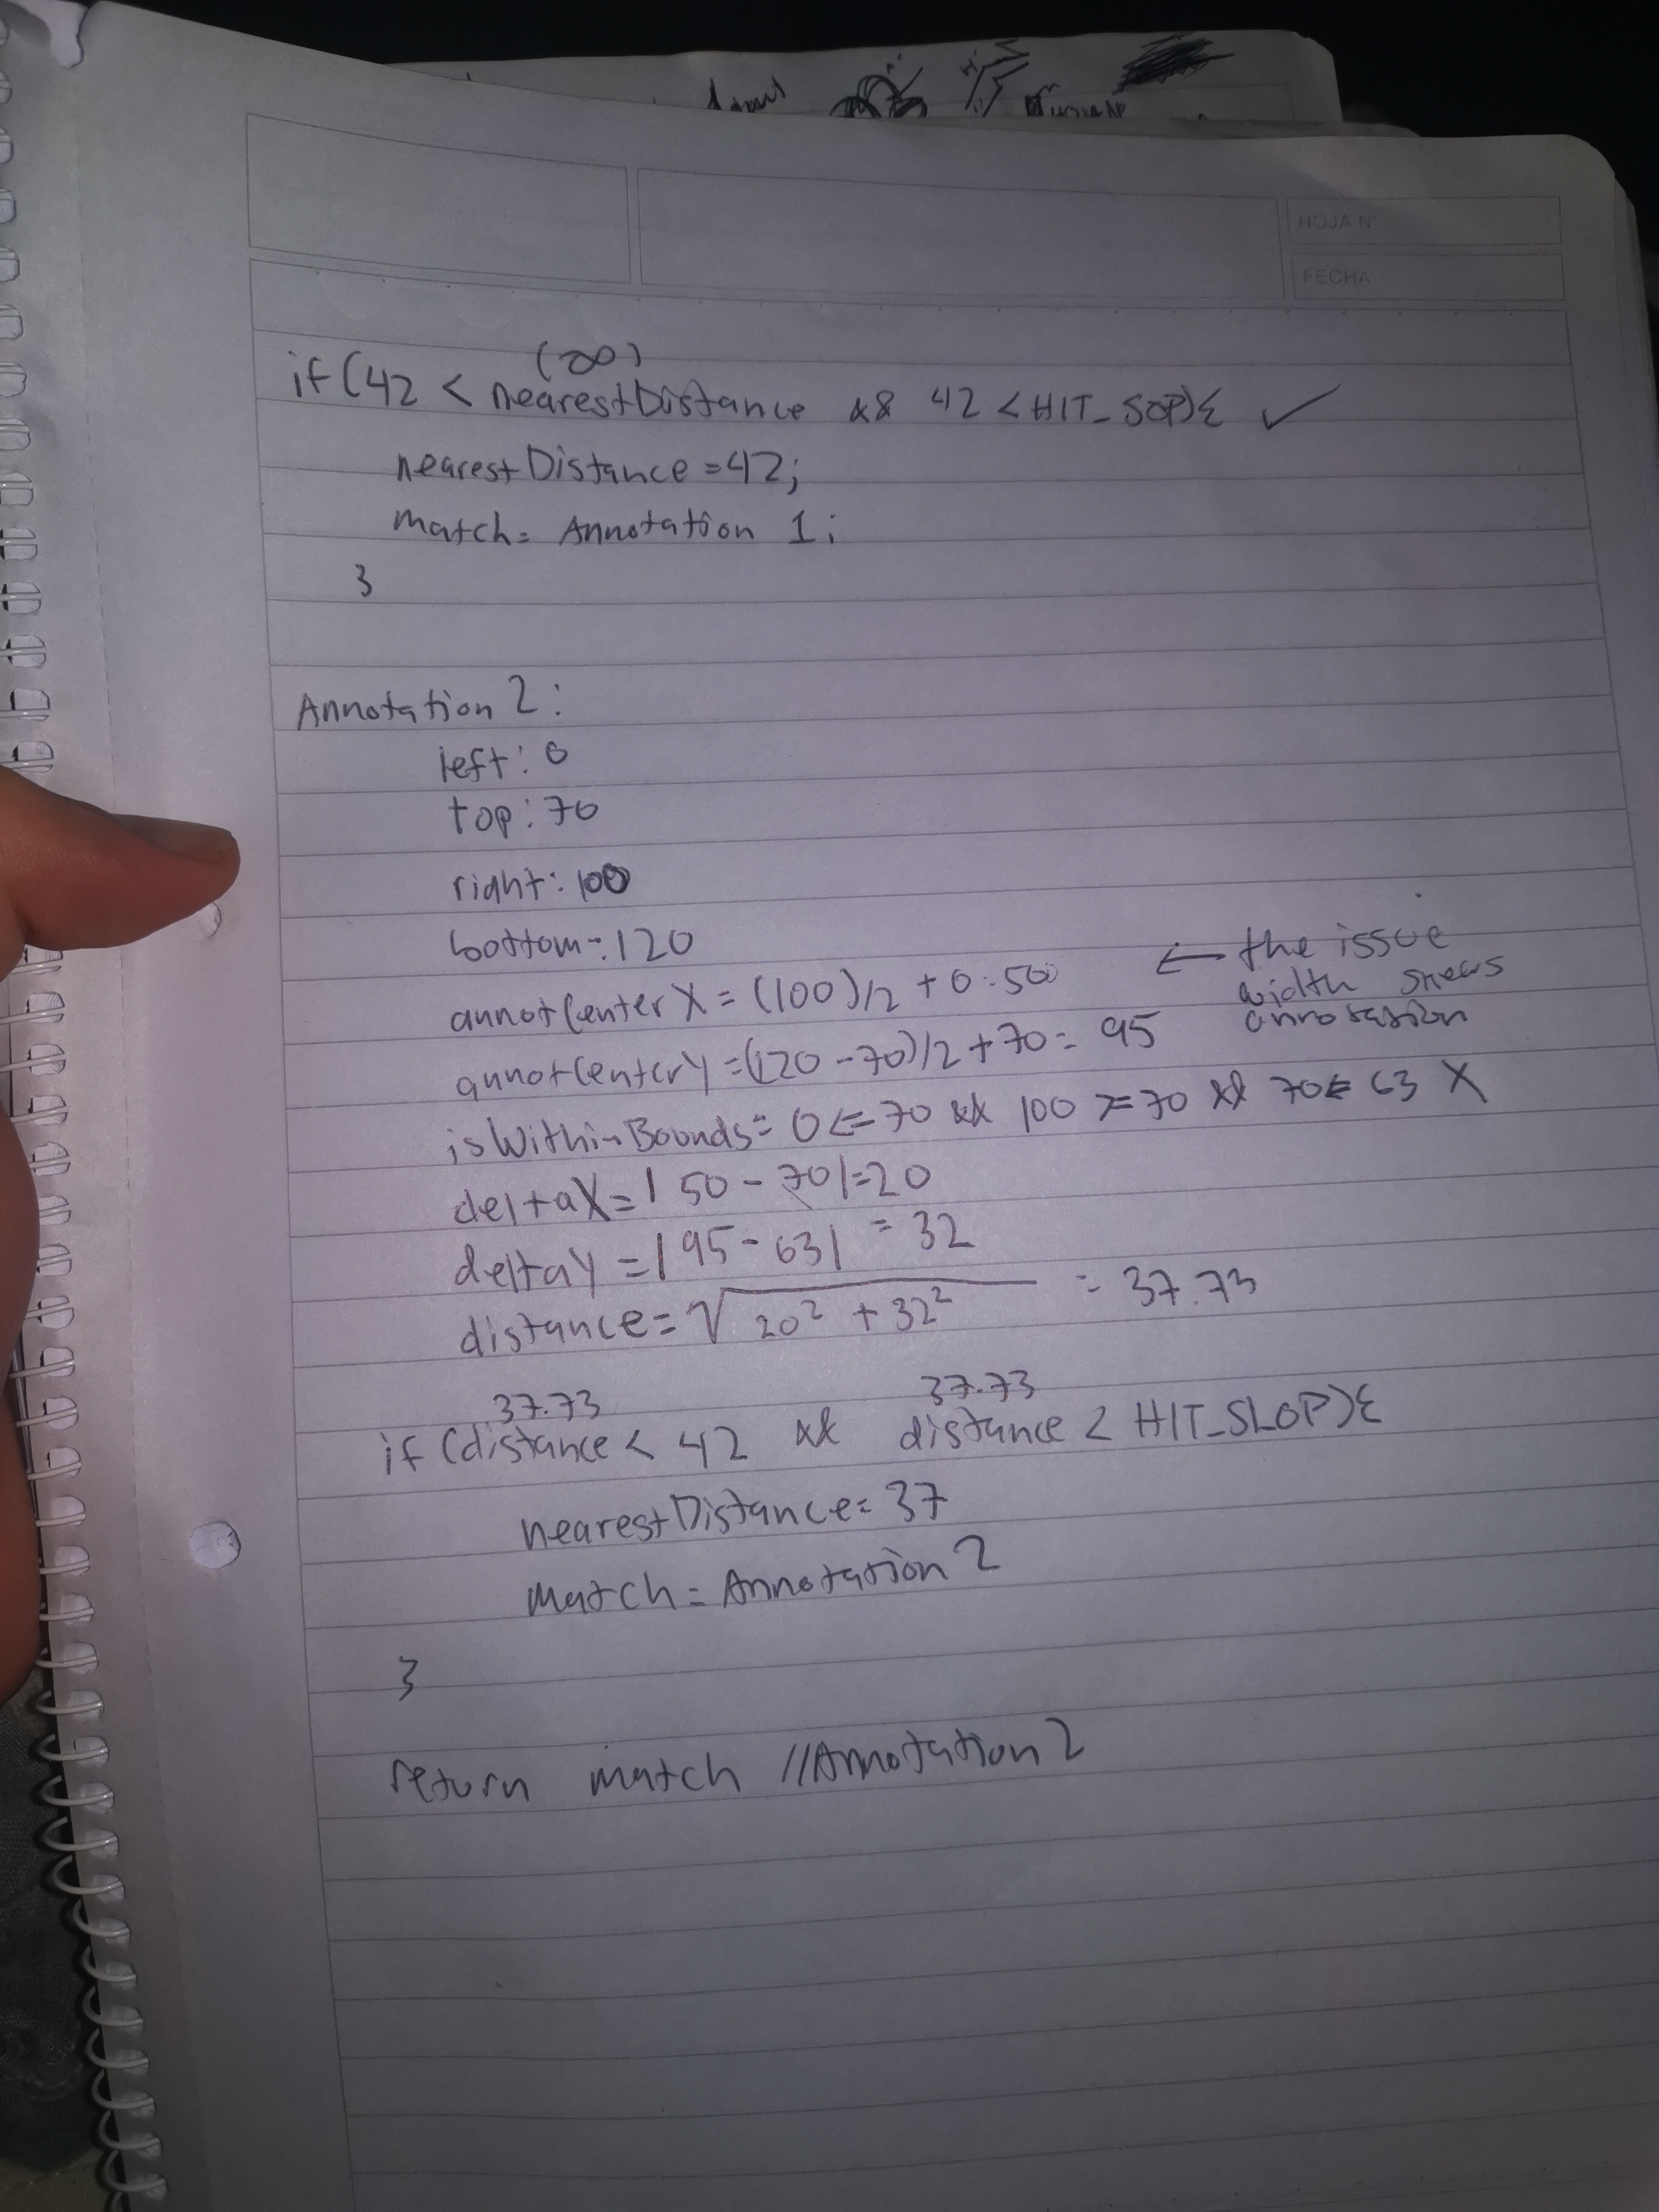 HOJA N°
FECHA
(∞)
if(42 < nearestDistance && 42 < HIT_SOP){ ✓
nearestDistance = 42;
match = Annotation 1;
}
Annotation 2:
left: 0
top: 70
right: 100
bottom: 120
annotCenterX = (100)/2 + 0 = 50 ← the issue
width skews
annotation
annotCenterY = (120 - 70)/2 + 70 = 95
isWithinBounds = 0 <= 70 && 100 >= 70 && 70 <= 63 X
deltaX = | 50 - 70 | = 20
deltaY = | 95 - 63 | = 32
distance = √ 20² + 32² = 37.73
37.73 37.73
if (distance < 42 && distance < HIT_SLOP){
nearestDistance = 37
match = Annotation 2
}
return match //Annotation 2